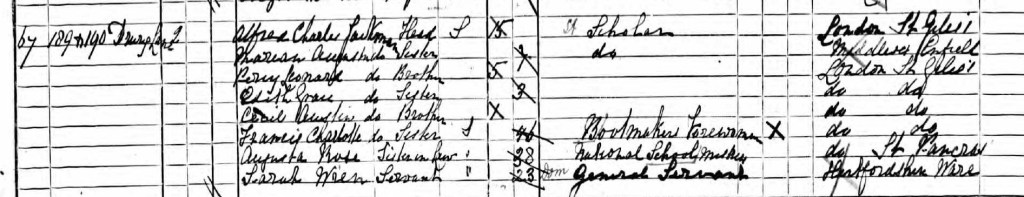 67 189 & 190 Drury Lane 2 Alfred Charles Jackman Head S 15 St Scholar London St Giles's
Marian Augusta do Sister 7 do Middlesex Enfield
Percy Leonard do Brother 5 London St Giles's
Edith Grace do Sister 3 do do
Cecil do Brother X do do
Francis Charlotte do Sister S 46 Bootmakers Forewoman X do do
Augusta Rose Sister in law " 28 National School Mistress do St Pancras
Sarah Wren Servant " 23 Dom General Servant Hertfordshire Ware